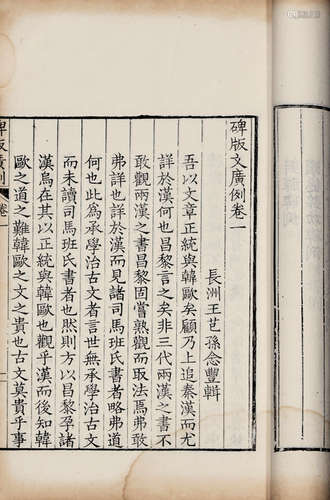 碑版文廣例卷一
長洲王芑孫念豐輯
吾以文章正統與韓歐矣顧乃上追秦漢而尤
詳於漢何也昌黎言之矣非三代兩漢之書不
敢觀兩漢之書昌黎固嘗熟觀而取法焉弗敢
弗詳也詳於漢而見諸司馬班氏書者略弗道
何也此為承學治古文者言世無承學治古文
而未讀司馬班氏書者也然則方以昌黎孕諸
漢烏在其以正統與韓歐也觀乎漢而後知韓
歐之道之難韓歐之文之貴也古文莫貴乎事
碑版廣例 卷一